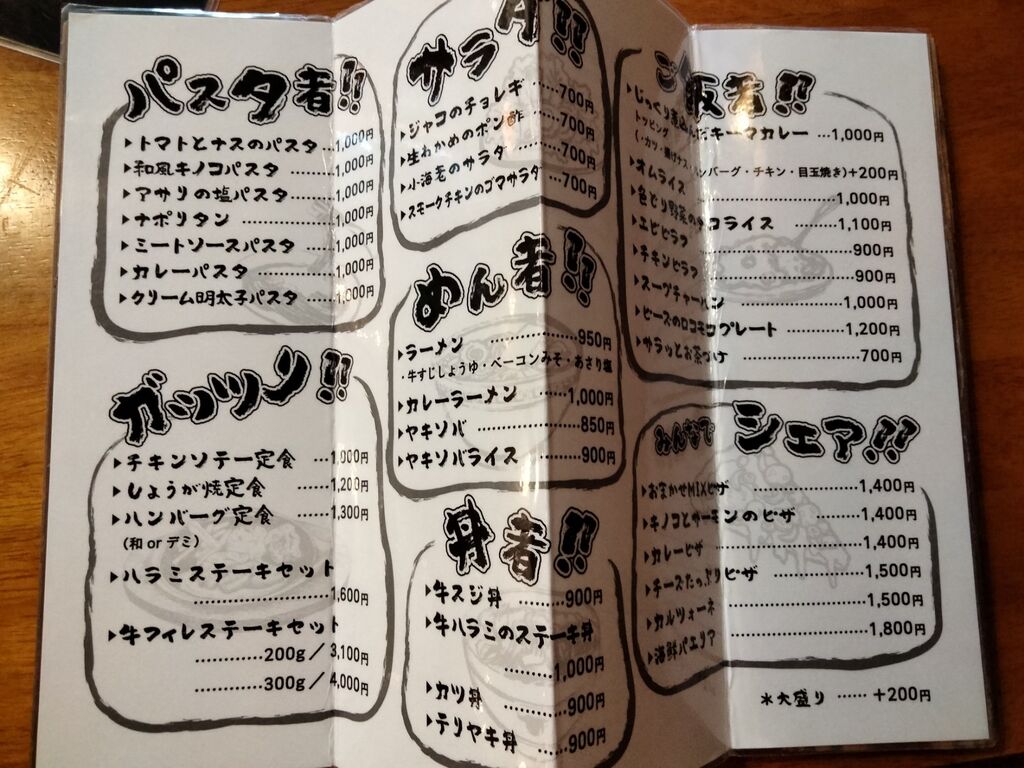 パスタ者!!
▶トマトとナスのパスタ…1,000円
▶和風キノコパスタ ……1,000円
▶アサリの塩パスタ ……1,000円
▶ナポリタン …………1,000円
▶ミートソースパスタ ……1,000円
▶カレーパスタ …………1,000円
▶クリーム明太子パスタ ……1,000円
ガッツリ!!
▶チキンソテー定食 …1,000円
▶しょうが焼定食 ……1,200円
▶ハンバーグ定食 ……1,300円
(和 or デミ)
▶ハラミステーキセット
……………………1,600円
▶牛フィレステーキセット
…………200g／3,100円
…………300g／4,000円
サラダ!!
▶ジャコのチョレギ ……700円
▶生わかめのポン酢 ……700円
▶小海老のサラダ ………700円
▶スモークチキンのゴマサラダ …700円
めん者!!
▶ラーメン ……………950円
・牛すじしょうゆ・ベーコンみそ・あさり塩
▶カレーラーメン ……1,000円
▶ヤキソバ ……………850円
▶ヤキソバライス ………900円
丼者!!
▶牛スジ丼 …………900円
▶牛ハラミのステーキ丼
……………1,000円
▶カツ丼 ……………900円
▶テリヤキ丼 …………900円
ご飯者!!
▶じっくり煮込んだキーマカレー …1,000円
トッピング
(・カツ・揚げナス・ハンバーグ・チキン・目玉焼き)+200円
▶オムライス ……………1,000円
▶色どり野菜のタコライス ……1,100円
▶エビピラフ ……………900円
▶チキンピラフ ……………900円
▶スープチャーハン …………1,000円
▶ピースのロコモコプレート ………1,200円
▶サラッとお茶づけ ……………700円
みんなで シェア!!
▶おまかせMIXピザ ……………1,400円
▶キノコとサーモンのピザ ………1,400円
▶カレーピザ ……………1,400円
▶チーズたっぷりピザ ……………1,500円
▶カルツォーネ ……………1,500円
▶海鮮パエリア ……………1,800円
＊大盛り …… +200円